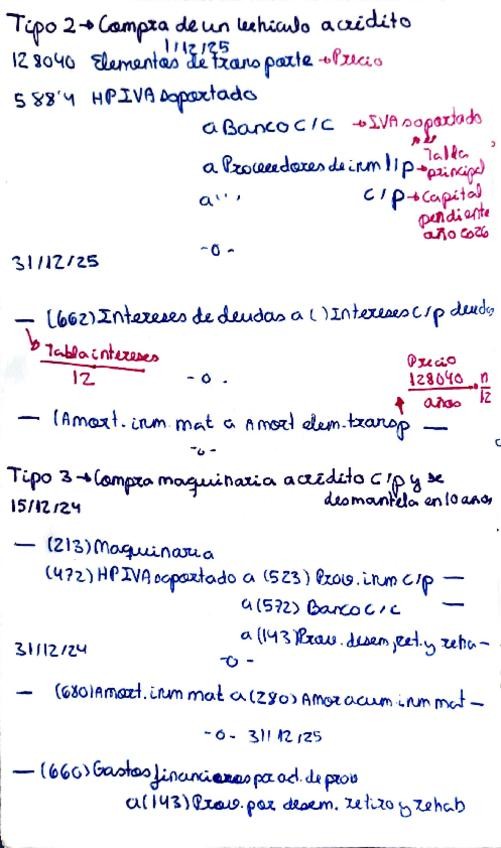 Tipo 2 → Compra de un vehiculo a crédito
1/12/25
128040 Elementos de transporte → Precio
588'4 HP IVA soportado
a Banco C/C → IVA soportado
a Proveedores de inm l/p → Tabla principal
a " " c/p → Capital pendiente año 2026
-o-
31/12/25
— (662) Intereses de deudas a ( ) Intereses c/p deudas
Tabla intereses
12
-o-
Precio
128040 . n
años 12
— (Amort. inm mat a Amort elem. transp —
-o-
Tipo 3 → Compra maquinaria a crédito C/p y se
desmantela en 10 anos
15/12/24
— (213) Maquinaria
(472) HP IVA soportado a (523) Prov. inm c/p —
a (572) Banco c/c —
a (143) Prov. desem, ret. y reha -
31/12/24
-o-
— (680) Amort. inm mat a (280) Amor acum inm mat —
-o- 31/12/25
— (660) Gastos financieros por act. de prov
a (143) Prov. por desem. retiro y rehab